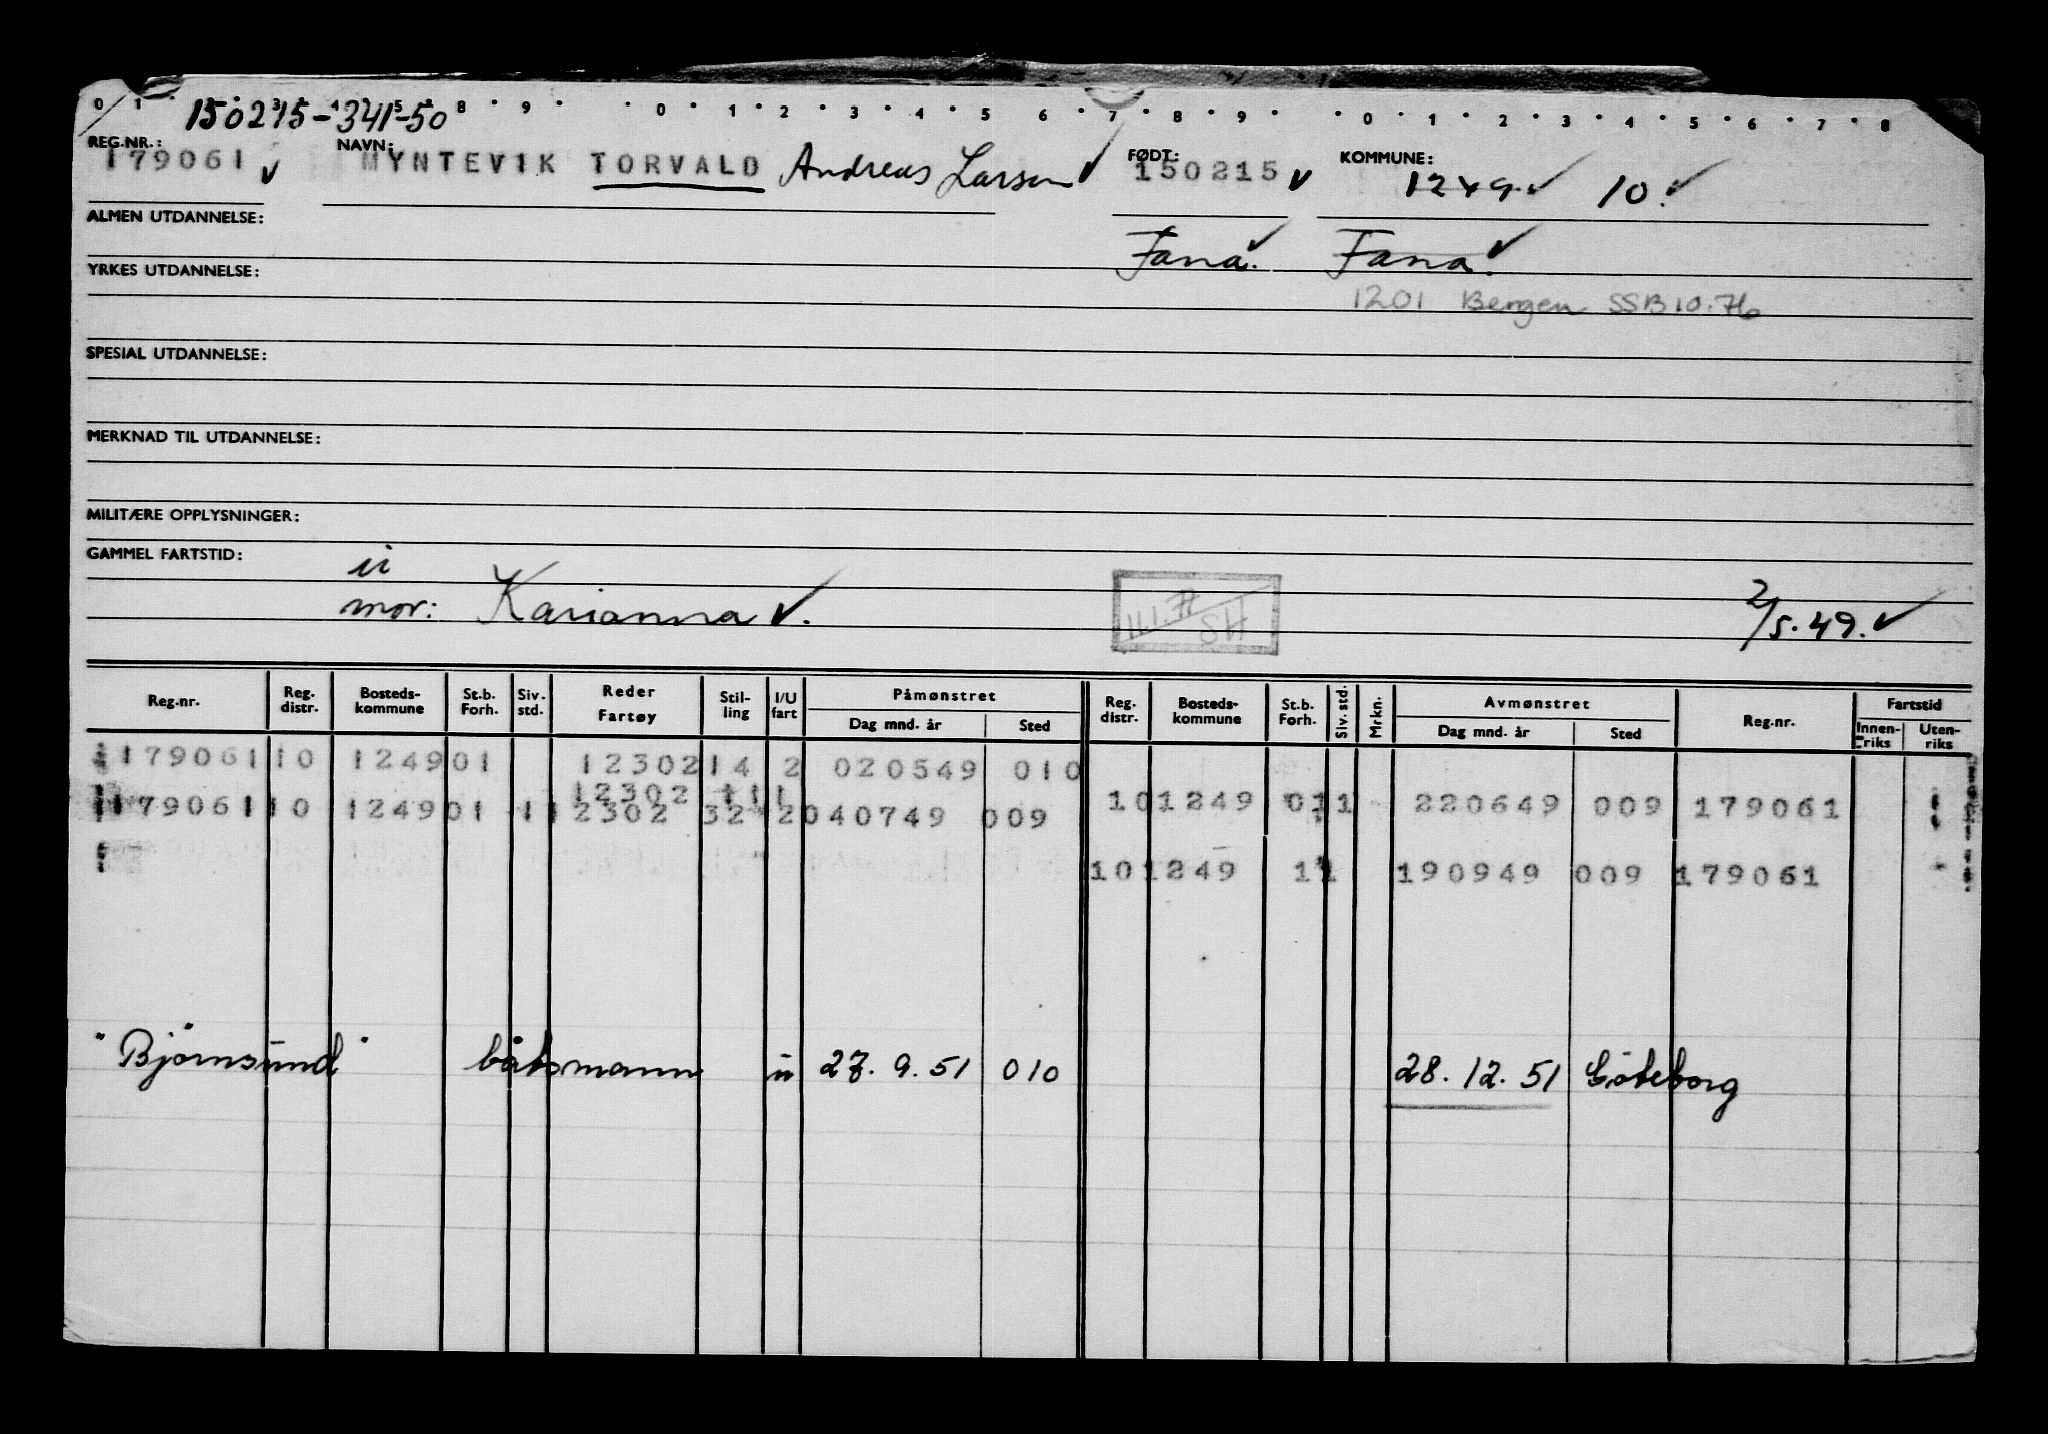 0 1 8 9 0 1 2 3 4 5 6 7 8 9 0 1 2 3 4 5 6 7 8
150215-34150
REG.NR.: NAVN: FØDT: KOMMUNE:
179061 ✓ MYNTEVIK TORVALD Andreas Larsen ✓ 150215 ✓ 1249. ✓ 10. ✓
ALMEN UTDANNELSE: Fana. ✓ Fana. ✓
YRKES UTDANNELSE:
1201 Bergen SSB 10.76
SPESIAL UTDANNELSE:
MERKNAD TIL UTDANNELSE:
MILITÆRE OPPLYSNINGER:
GAMMEL FARTSTID: ii
mor: Karianna ✓. 11.1.77 SH 2/5.49. ✓
Reg.nr. Reg. distr. Bosteds-kommune St.b. Forh. Siv. std. Reder Fartøy Stil-ling I/U fart Påmønstret Dag mnd. år Sted Reg. distr. Bosteds-kommune St.b. Forh. Siv. std. Mrkn. Avmønstret Dag mnd. år Sted Reg.nr. Fartstid Innen-riks Uten-riks
179061 10 1249 01 12302 14 2 020549 010
12302 111 10 1249 01 1 220649 009 179061
179061 10 1249 01 1 12302 32 2 040749 009
10 1249 1 1 190949 009 179061
"Bjørnsund" båtsmann u 27. 9. 51 010 28. 12. 51 Göteborg